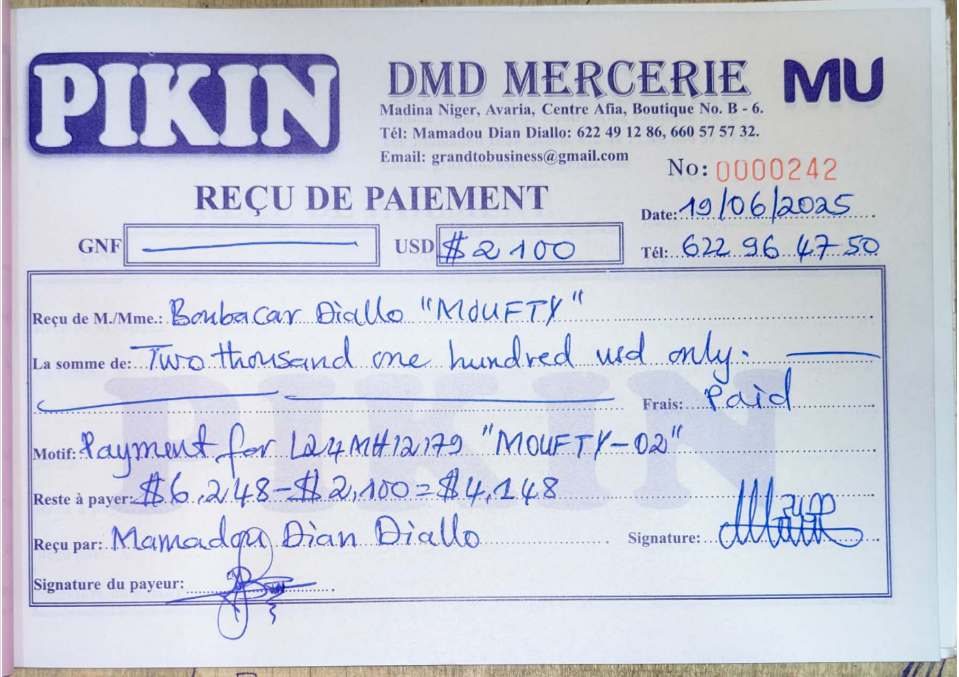 PIKIN
DMD MERCERIE MU
Madina Niger, Avaria, Centre Afia, Boutique No. B - 6.
Tél: Mamadou Dian Diallo: 622 49 12 86, 660 57 57 32.
Email: grandtobusiness@gmail.com
No: 0000242
REÇU DE PAIEMENT
Date: 19/06/2025
GNF USD $2100 Tél: 622 96 47 50
Reçu de M./Mme.: Boubacar Diallo "MOUFTY"
La somme de: Two thousand one hundred usd only.
Frais: Paid
Motif: Payment for L24MH12179 "MOUFTY-02"
Reste à payer: $6,248-$2,100=$4,148
Reçu par: Mamadou Dian Diallo Signature:
Signature du payeur:
PIKIN